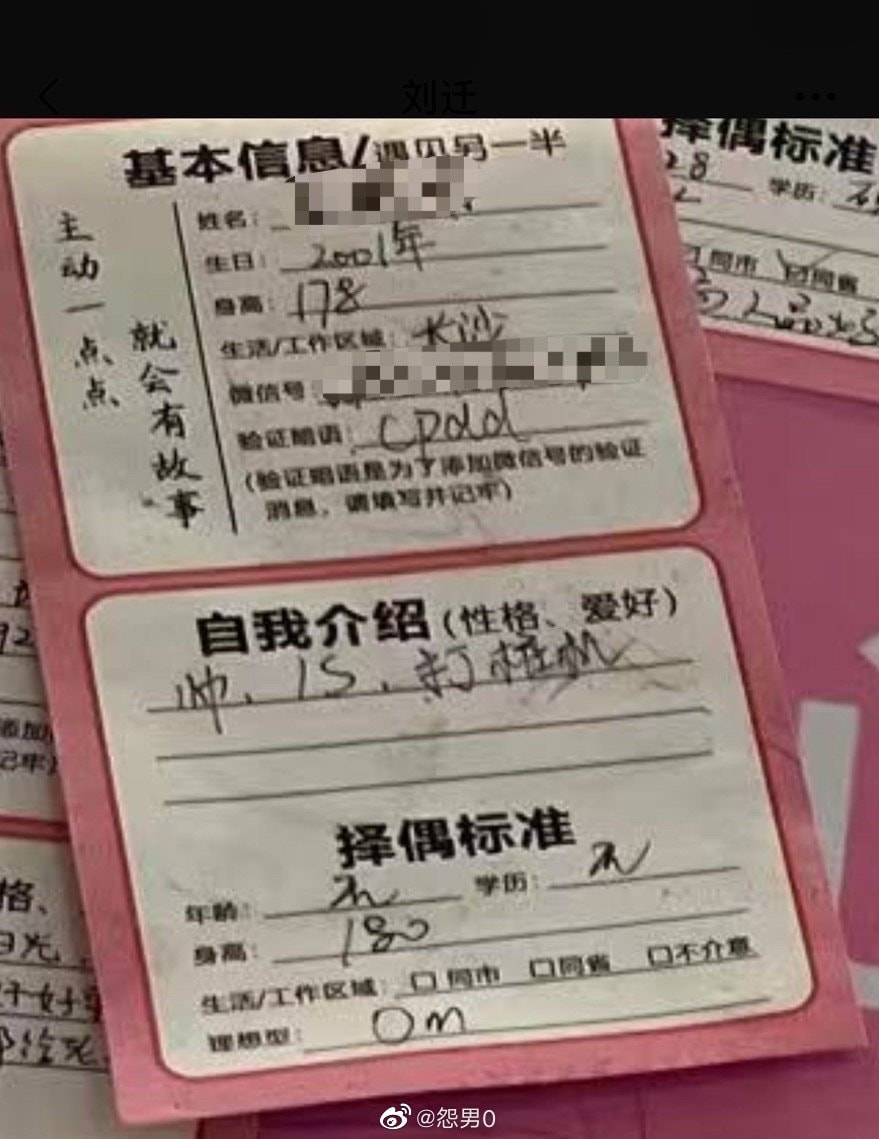 刘迁
基本信息/遇见另一半
主动一点点
就会有故事
姓名:
生日: 2001年
身高: 178
生活/工作区域: 长沙
微信号
验证暗语: cpdd
(验证暗语是为了添加微信号的验证
消息, 请填写并记牢)
自我介绍(性格、爱好)
帅、1S、打桩机
择偶标准
年龄: 无 学历: 无
身高: 180
生活/工作区域: 口同市 口同省 口不介意
理想型: 0m
择偶标准
28 学历:
同市 同省
添加
记牢)
格、
@怨男0